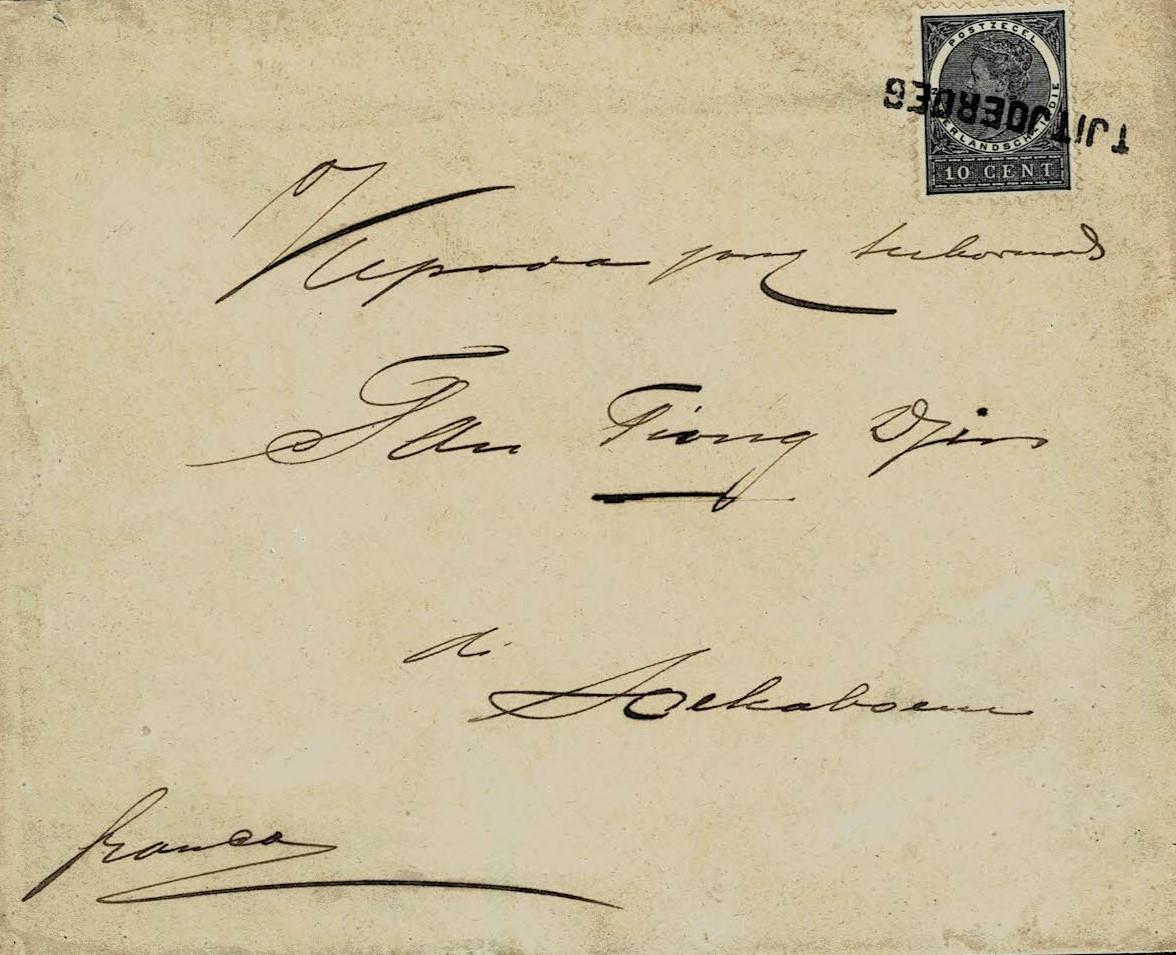 POSTZEGEL
NEDERLANDSCH-INDIE
10 CENT
TJITJOEROEG
Kepada jang terhormat
Tan Tiong Djin
di
Soekaboemi
franco